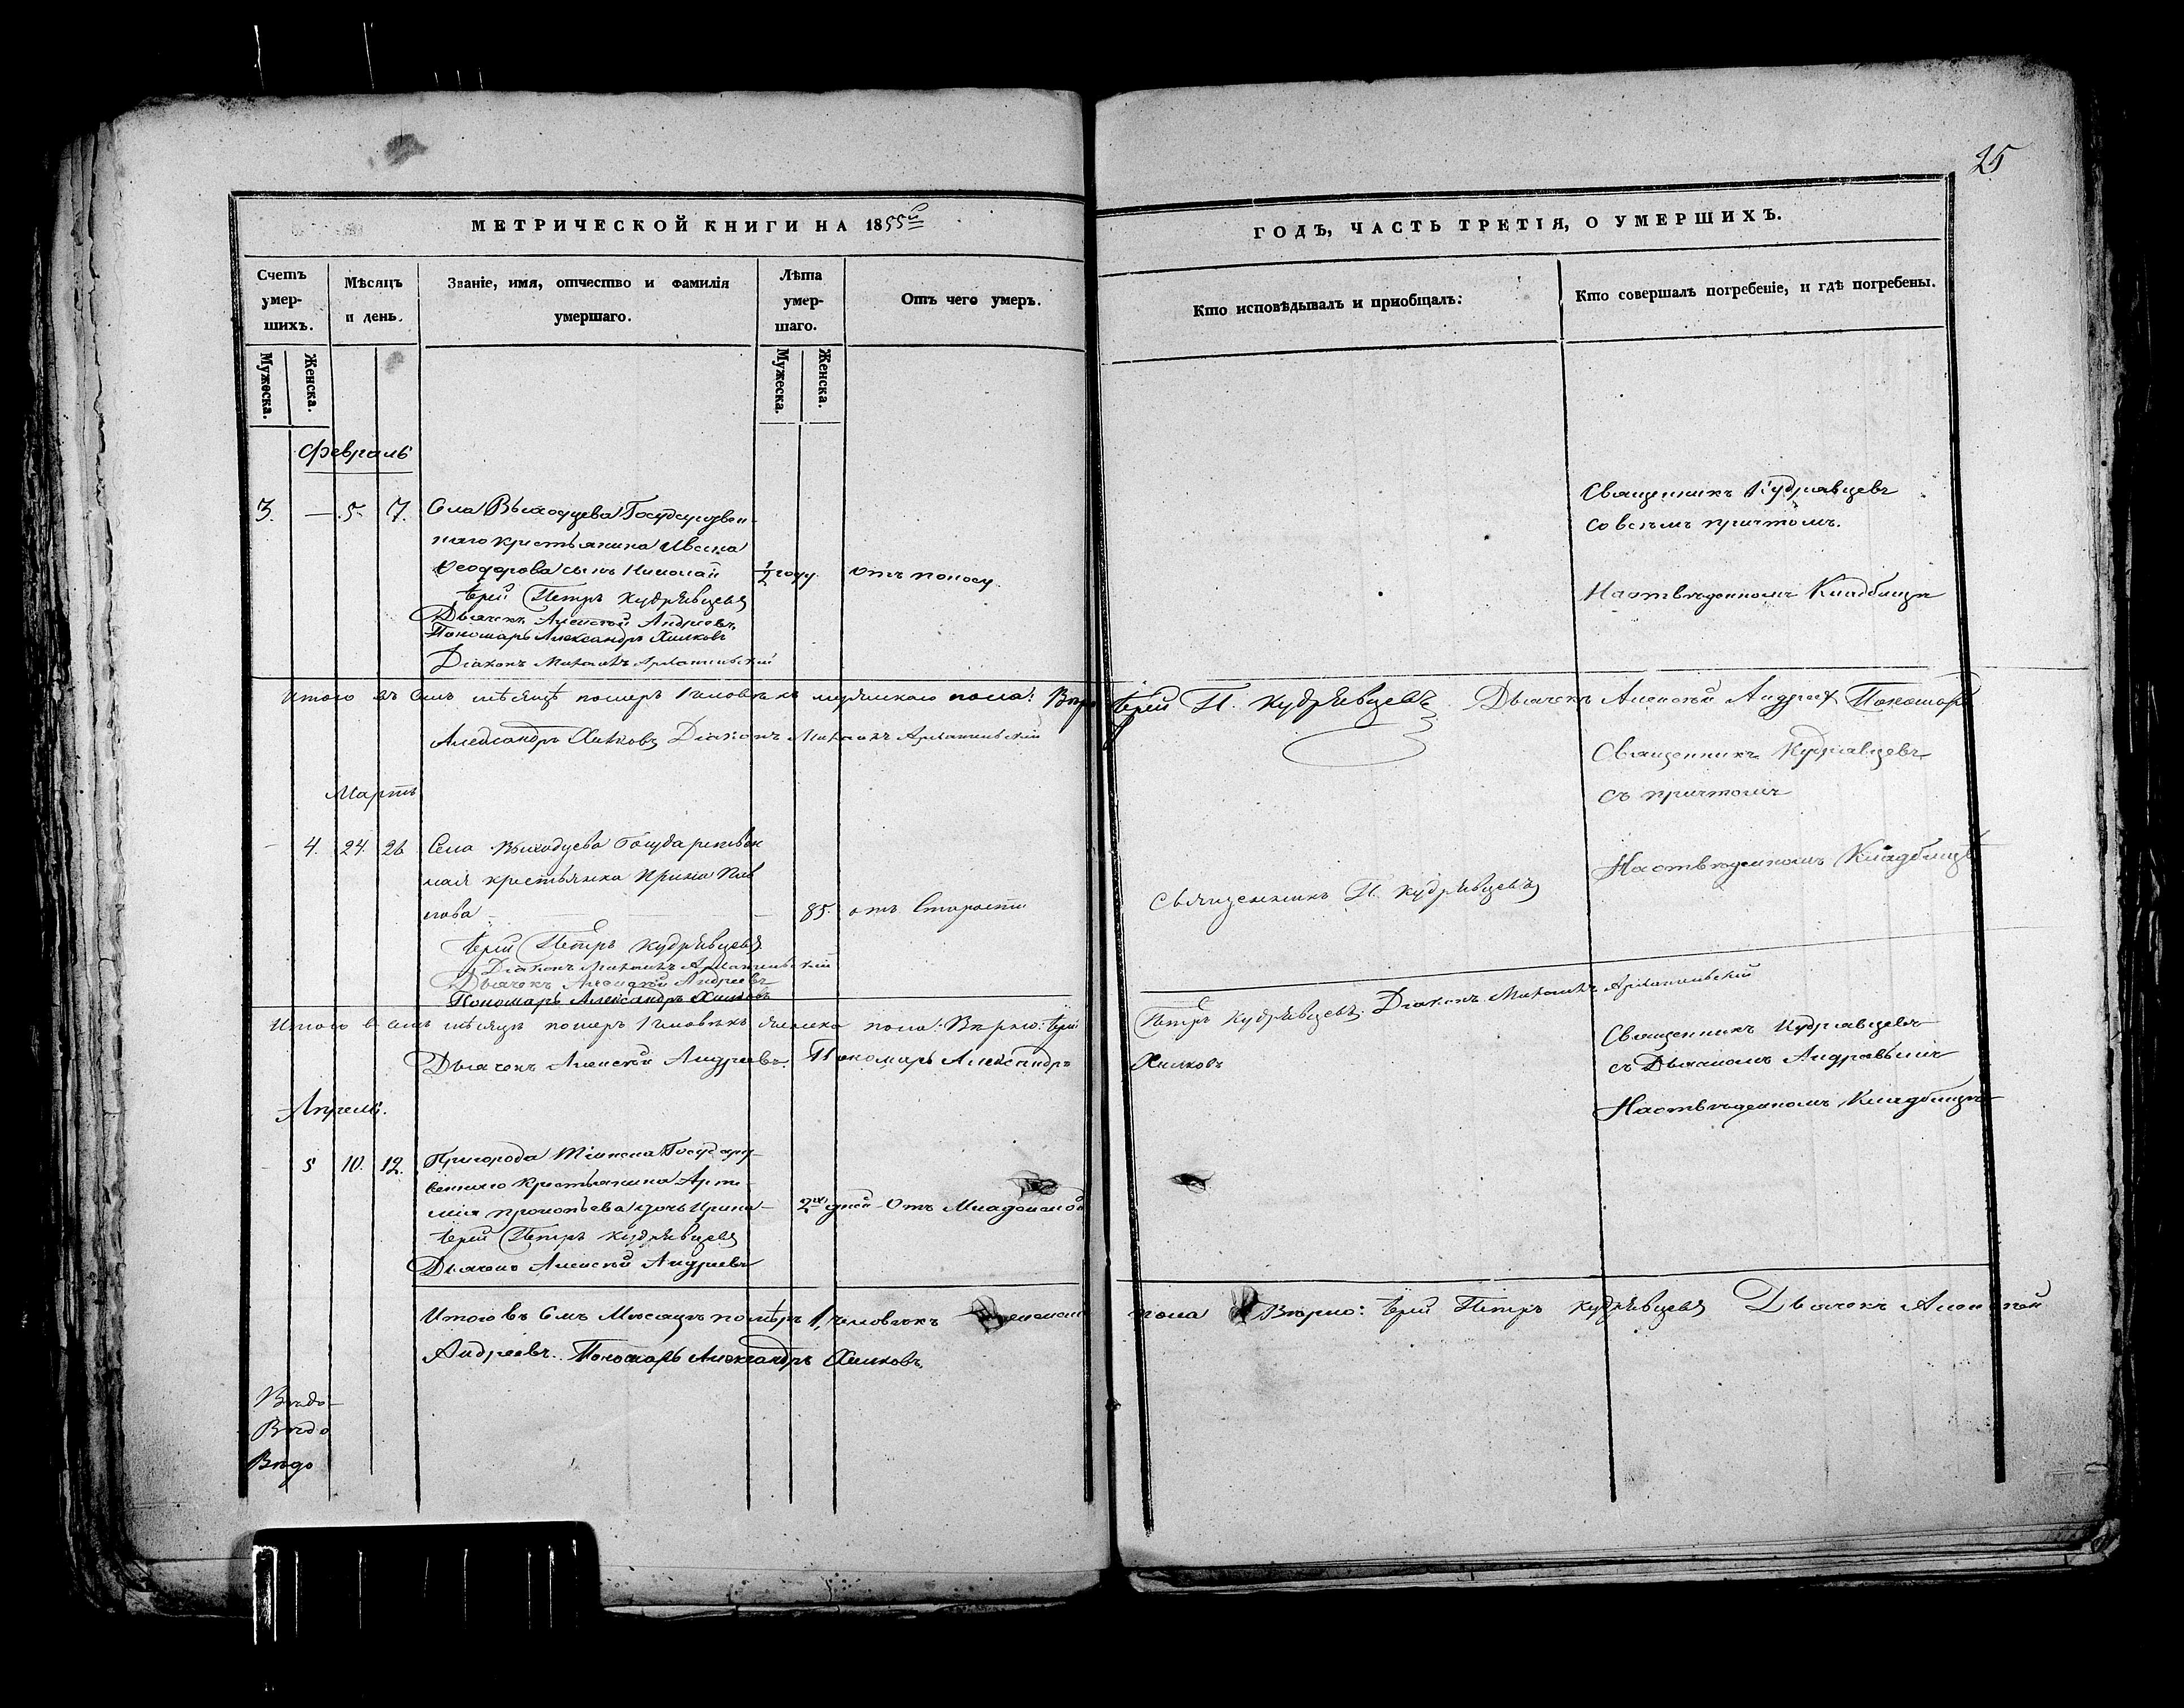 25
МЕТРИЧЕСКОЙ КНИГИ НА 1855й
ГОДЪ, ЧАСТЬ ТРЕТІЯ, О УМЕРШИХЪ.
Счетъ умер-шихъ.
Мѣсяцъ и день.
Званіе, имя, отчество и фамилія умершаго.
Лѣта умер-шаго.
Отъ чего умеръ.
Кто исповѣдывалъ и пріобщалъ:
Кто совершалъ погребеніе, и гдѣ погребены.
Мужеска.
Женска.
Мужеска.
Женска.
Февраль
3. — 5. 7. Села Выходцева Государствен-
наго крестьянина Ивана
Ѳеодорова сынъ Николай ½ году. отъ поносу.
Іерей Петръ Кудрявцевъ
Дьячекъ Алексѣй Андреевъ
Пономарь Александръ Хилковъ
Діаконъ Михаилъ
Священникъ Кудрявцевъ
со всѣмъ причтомъ.
На отведенномъ Кладбищѣ
Итого въ семъ мѣсяцѣ померъ 1 человѣкъ мужескаго пола: Вѣрно Іерей П. Кудрявцевъ Дьячекъ Алексѣй Андреев Пономарь
Александръ Хилковъ Діаконъ Михаилъ
Мартъ
- 4. 24. 26 Села Выходцева Государствен
ная крестьянка Ирина Пав
лова - — 85. отъ Старости
Іерей Петръ Кудрявцевъ
Діаконъ Михаилъ
Дьячекъ Алексѣй Андреевъ
Пономарь Александръ Хилковъ
Священникъ П. Кудрявцевъ
Священникъ Кудрявцевъ
съ причтомъ
На отведенномъ Кладбищѣ
Итого въ семъ мѣсяцѣ померъ 1 человѣкъ женска пола: Вѣрно: Іерей Петръ Кудрявцевъ. Діаконъ Михаилъ
Дьячекъ Алексѣй Андреевъ. Пономарь Александръ Хилковъ
Апрель.
- 5 10. 12. Пригорода Тіинска Государ-
веннаго Крестьянина Арте-
мія Прокопьева дочь Ирина- 2хъ дней- Отъ Младенской
Іерей Петръ Кудрявцевъ
Дьячекъ Алексѣй Андреевъ
Священникъ Кудрявцевъ
съ Дьячкомъ Андреевымъ
На отведенномъ Кладбищѣ
Итого въ Семъ Мѣсяцѣ помѣръ 1, человѣкъ женска пола Вѣрно: Іерей Петръ Кудрявцевъ Дьячекъ Алексѣй
Андреевъ. Пономарь Александръ Хилковъ.